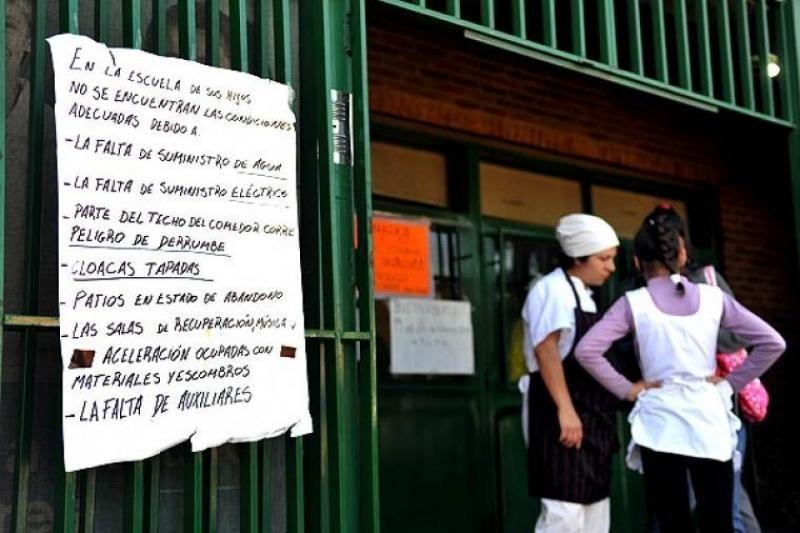 EN LA ESCUELA DE SUS HIJOS
NO SE ENCUENTRAN LAS CONDICIONES
ADECUADAS DEBIDO A.
- LA FALTA DE SUMINISTRO DE AGUA
- LA FALTA DE SUMINISTRO ELÉCTRICO
- PARTE DEL TECHO DEL COMEDOR CORRE
PELIGRO DE DERRUMBE
- CLOACAS TAPADAS
- PATIOS EN ESTADO DE ABANDONO
- LAS SALAS DE RECUPERACIÓN, MÚSICA Y
ACELERACIÓN OCUPADAS CON
MATERIALES Y ESCOMBROS
- LA FALTA DE AUXILIARES